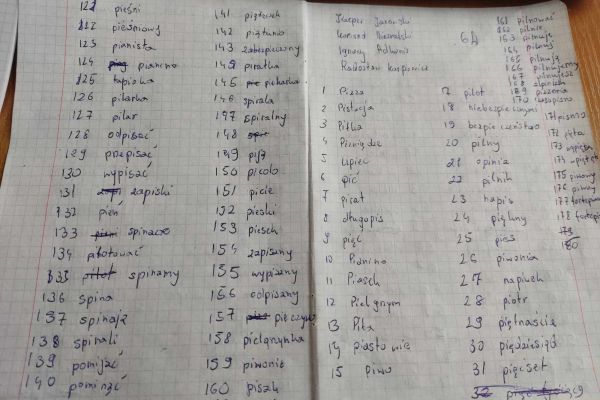 121 pieśni
122 pieśniowy
123 pianista
124 pianino
125 tapioka
126 pilarka
127 pilar
128 odpisać
129 przepisać
130 wypisać
131 zapiski
132 pień
133 spinacze
134 pilotować
135 spinamy
136 spina
137 spinają
138 spinali
139 pomijać
140 pominąć
141 piątaszek
142 piętno
143 zabezpieczony
144 piratka
145 piekarka
146 spirala
147 spiralny
148
149 pięź
150 picolo
151 picie
152 pieski
153 piesek
154 zapisany
155 wypisany
156 odpisany
157 pieczywo
158 pielęgniarka
159 piwonie
160 pisak
64
1 Pizza
2 Pistacja
3 Piłka
4 Pieniądze
5 Lipiec
6 pić
7 pirat
8 długopis
9 pięć
10 Pianino
11 Piasek
12 Pielęgnym
13 Piła
14 piastowie
15 Piwo
17 pilot
18 niebezpiecznymi
19 bezpieczeństwo
20 pilny
21 opinia
22 pilnik
23 napis
24 piękny
25 pies
26 piwonia
27 napiwek
28 piotr
29 piętnaście
30 pięćdziesiąt
31 pięćset
32
161 pilnować
162 pilnik
163 pilnuje
164 pilnuj
165 pilnują
166 pilnujemy
167 pilnujesz
169 pizzeria
171 pismo
172 pięta
175 piwowy
176 piwny
179
180